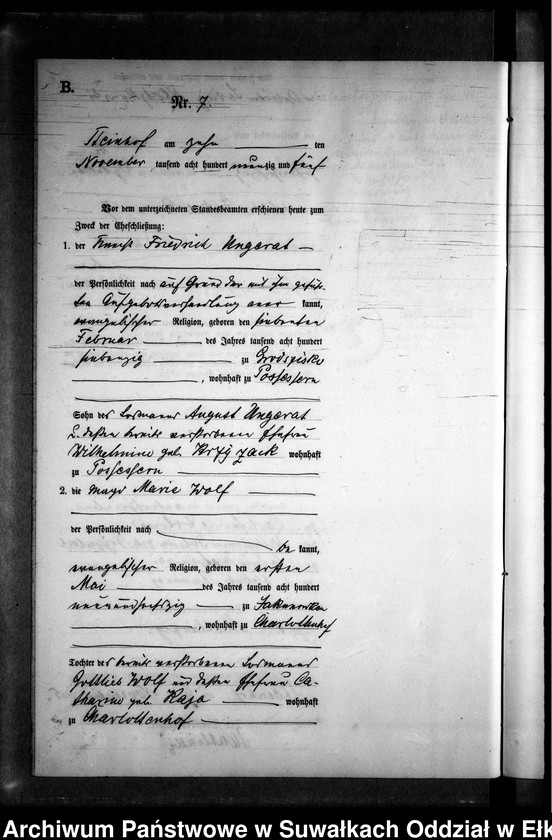 B.
Nr. 7.
Steinhof am zehn ten
November tausend acht hundert neunzig und fünf
Vor dem unterzeichneten Standesbeamten erschienen heute zum
Zweck der Eheschließung:
1. der Knecht Friedrich Ungerat
der Persönlichkeit nach auf Grund der mit ihm geführ-
ten Aufgebotsverhandlung aner kannt,
evangelischer Religion, geboren den siebenten
Februar des Jahres tausend acht hundert
siebenzig zu Grodzisko
, wohnhaft zu Possessern
Sohn des Losmanns August Ungerat
u. dessen bereits verstorbenen Ehefrau
Wilhelmine geb. wohnhaft
zu Possessern
2. die Magd Marie Wolf
der Persönlichkeit nach
be kannt,
evangelischer Religion, geboren den ersten
Mai des Jahres tausend acht hundert
neunundsechzig zu
, wohnhaft zu Charlottenhof
Tochter des bereits verstorbenen Losmanns
Gottlieb Wolf und dessen Ehefrau Ca-
tharine geb. Kaja wohnhaft
zu Charlottenhof
Archiwum Państwowe w Suwałkach Oddział w Ełk